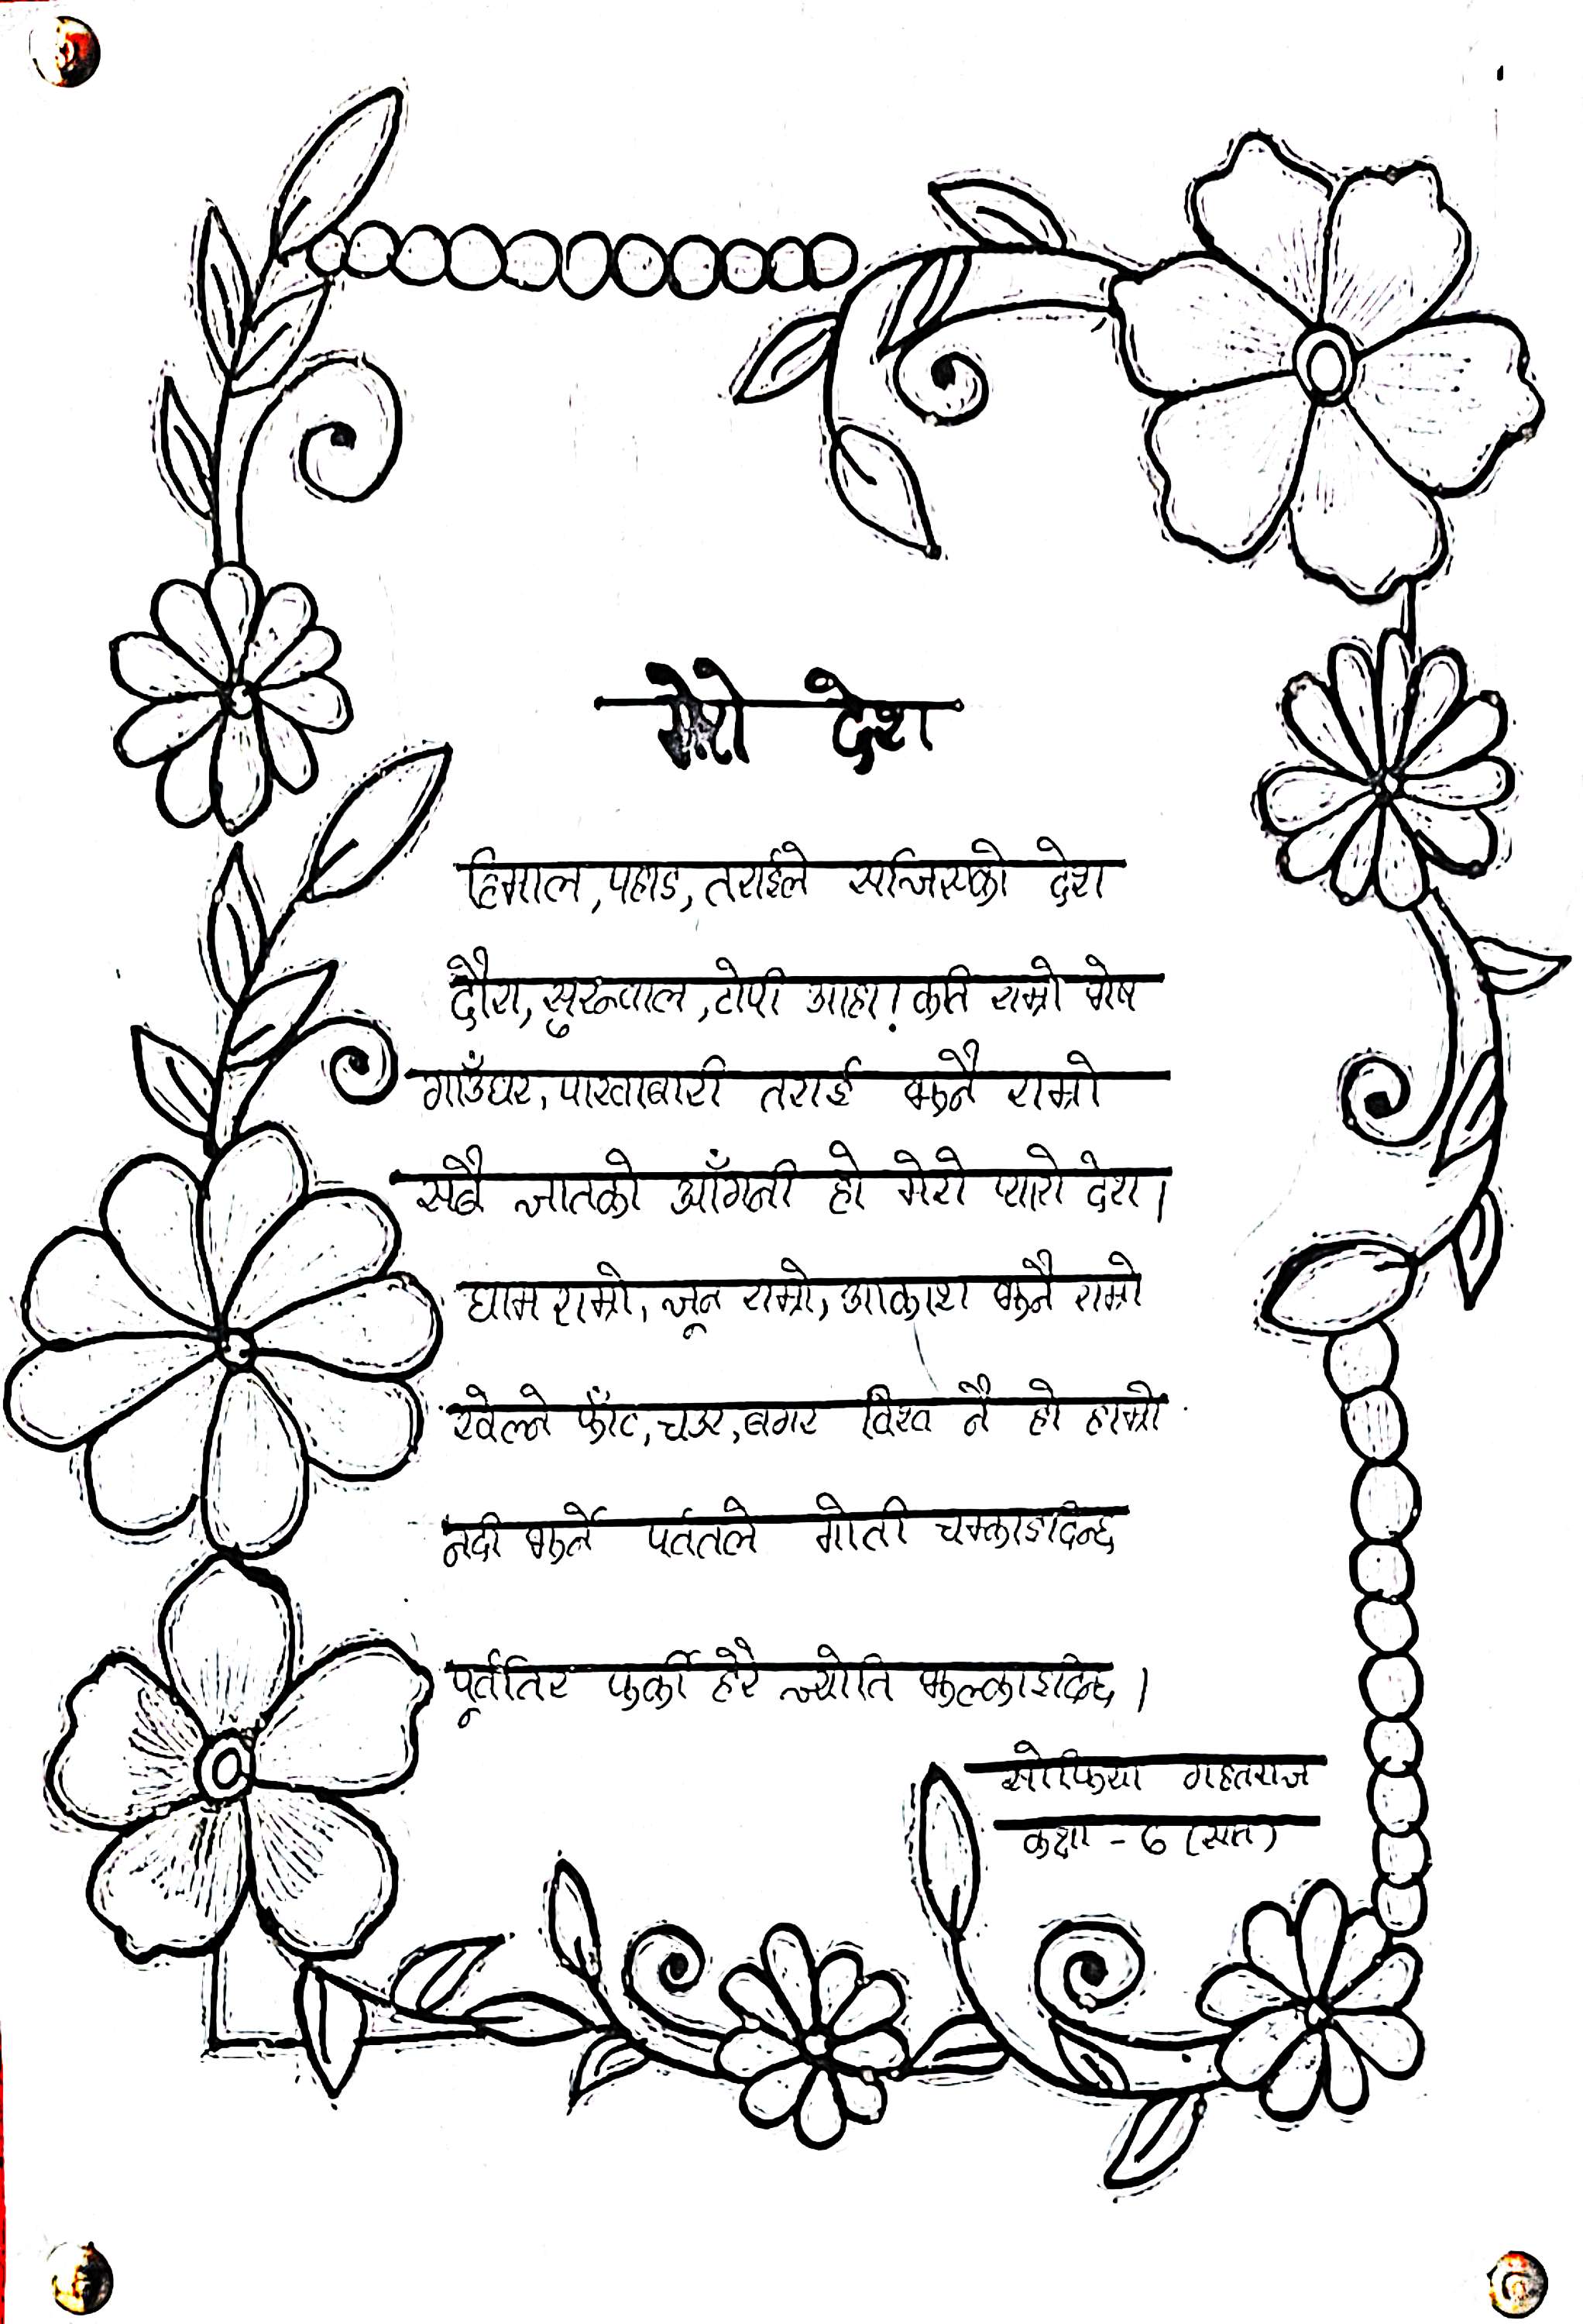 मेरो देश
हिमाल, पहाड, तराईले सजिएको देश
दौरा, सुरुवाल, टोपी आहा! कति राम्रो भेष
गाउँघर, पाखाबारी तराई झनै राम्रो
सबै जातको आँगनी हो मेरो प्यारो देश।
घाम राम्रो, जून राम्रो, आकाश झनै राम्रो
खेल्ने फाँट, चउर, बगर विश्व नै हो हाम्रो
नदी झर्ने पर्वतले मोती चम्काइदिन्छ
पूर्वतिर फर्की हेरे ज्योति झल्काइदिन्छ।
सोफिया गहतराज
कक्षा - ७ (सात)